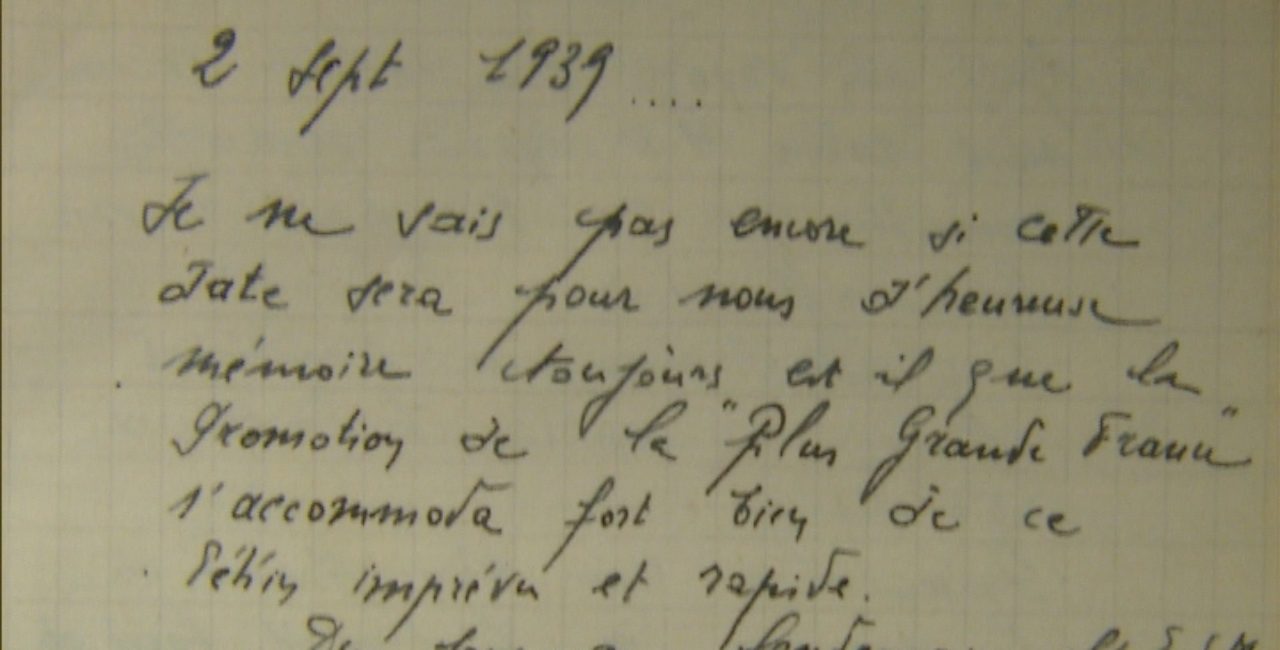 2 Sept 1939....
Je ne sais pas encore si cette
date sera pour nous d'heureuse
mémoire toujours est il que la
Promotion de la "Plus Grande France"
s'accommoda fort bien de ce
imprévu et rapide.